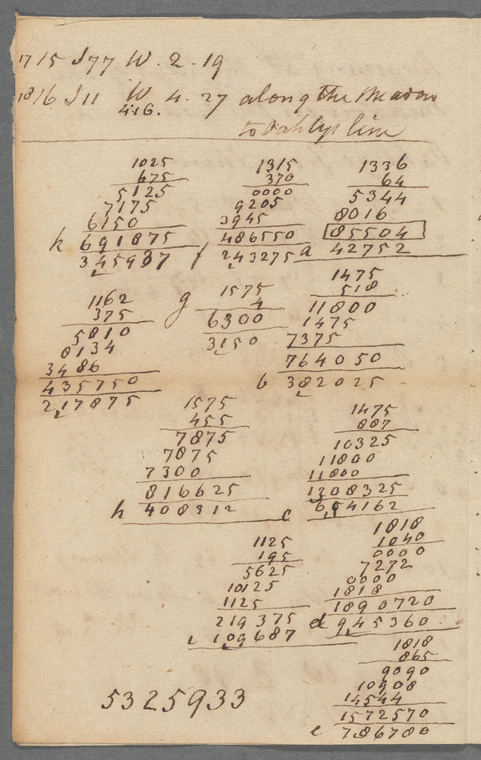 17/15 S77 W. 2. 19
18/16 S11 W. 4. 27 along the Meadow
4.16.
to line
1025
675
5125
7175
6150
h 691875
345937
1315
370
0000
9205
3945
486550
f 243275
1336
64
5344
8016
85504
a 42752
1162
375
5810
8134
3486
435750
217875
g 1575
4
6300
3150
1475
518
11800
1475
7375
764050
b 382025
1575
455
7875
7875
7300
816625
h 408312
1475
887
10325
11800
11800
1308325
c 654162
1125
195
5625
10125
1125
219375
i 109687
1818
1040
0000
7272
0000
1818
1890720
d 945360
1818
865
9090
10908
14544
1572570
e 786780
5325933